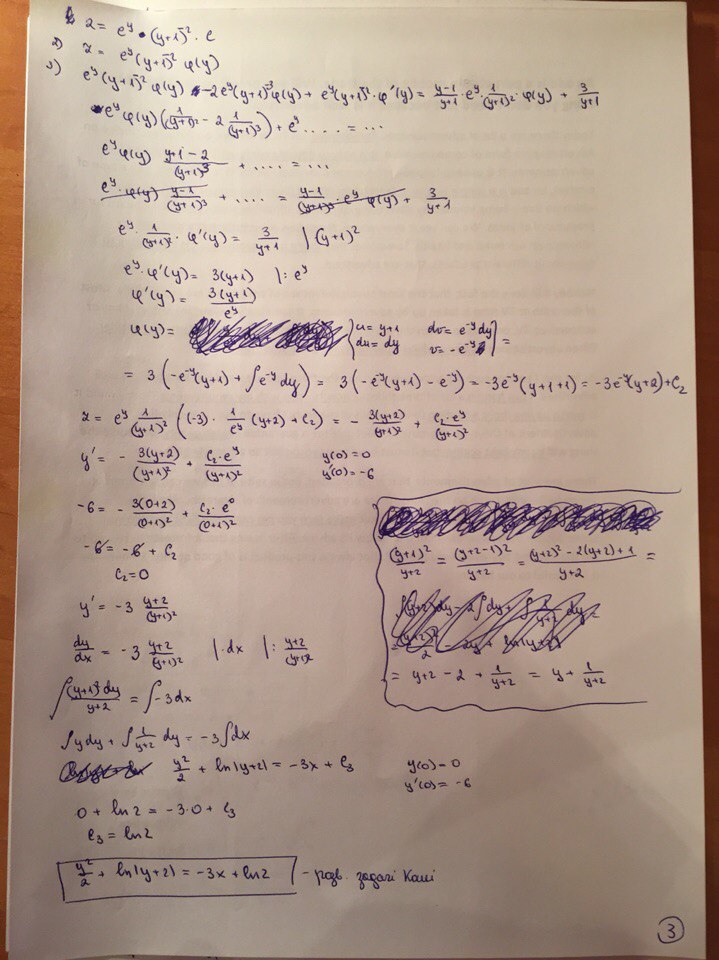 z = e^y · (y+1)^-2 · e
2) z = e^y (y+1)^-2 φ(y)
3) e^y (y+1)^-2 φ(y) - 2e^y (y+1)^-3 φ(y) + e^y (y+1)^-2 · φ'(y) = (y-1)/(y+1) · e^y · 1/(y+1)^2 · φ(y) + 3/(y+1)
e^y φ(y) (1/(y+1)^2 - 2 1/(y+1)^3) + e^y ..... = ...
e^y φ(y) (y+1-2)/(y+1)^3 + .... = ...
e^y · φ(y) (y-1)/(y+1)^3 + .... = (y-1)/(y+1)^3 · e^y φ(y) + 3/(y+1)
e^y · 1/(y+1)^2 · φ'(y) = 3/(y+1) | (y+1)^2
e^y · φ'(y) = 3(y+1) |: e^y
φ'(y) = 3(y+1)/e^y
φ(y) = { u = y+1 dv = e^-y dy
du = dy v = -e^-y } =
= 3 (-e^-y (y+1) + ∫e^-y dy) = 3 (-e^-y (y+1) - e^-y) = -3e^-y (y+1+1) = -3e^-y (y+2) + C₂
z = e^y 1/(y+1)^2 ((-3) · 1/e^y (y+2) + C₂) = - 3(y+2)/(y+1)^2 + C₂·e^y/(y+1)^2
y' = - 3(y+2)/(y+1)^2 + C₂·e^y/(y+1)^2 y(0) = 0
y'(0) = -6
-6 = - 3(0+2)/(0+1)^2 + C₂·e^0/(0+1)^2
-6 = -6 + C₂
C₂ = 0
y' = -3 (y+2)/(y+1)^2
dy/dx = -3 (y+2)/(y+1)^2 | · dx |: (y+2)/(y+1)^2
∫ (y+1)^2 dy/(y+2) = ∫ -3dx
∫ y dy + ∫ 1/(y+2) dy = -3 ∫dx
y^2/2 + ln|y+2| = -3x + C₃ y(0) = 0
y'(0) = -6
0 + ln2 = -3·0 + C₃
C₃ = ln2
y^2/2 + ln|y+2| = -3x + ln2 - розв. задачі Коші
(y+1)^2/(y+2) = (y+2-1)^2/(y+2) = ((y+2)^2 - 2(y+2) + 1)/(y+2) =
∫(y+2)dy - 2∫dy + ∫ 1/(y+2) dy =
= (y+2)^2/2 - 2y + ln|y+2|
= y+2 - 2 + 1/(y+2) = y + 1/(y+2)
3